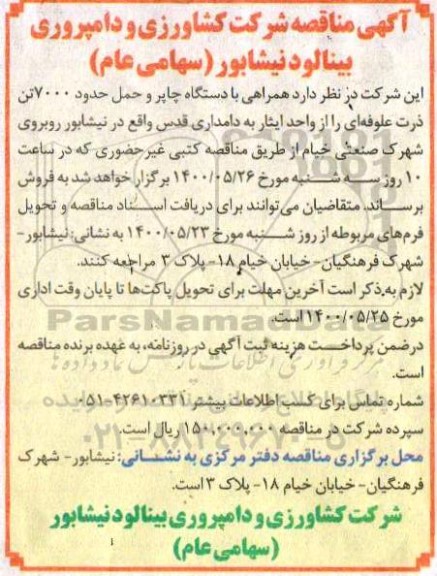 آگهی مناقصه شرکت کشاورزی و دامپروری
بینالود نیشابور (سهامی عام)
این شرکت در نظر دارد همراهی با دستگاه چاپر و حمل حدود ۷۰۰۰ تن
ذرت علوفه‌ای را از واحد ایثار به دامداری قدس واقع در نیشابور روبروی
شهرک صنعتی خیام از طریق مناقصه کتبی غیر حضوری که در ساعت
۱۰ روز سه شنبه مورخ ۱۴۰۰/۰۵/۲۶ برگزار خواهد شد به فروش
برساند. متقاضیان می‌توانند برای دریافت اسناد مناقصه و تحویل
فرم‌های مربوطه از روز شنبه مورخ ۱۴۰۰/۰۵/۲۳ به نشانی: نیشابور-
شهرک فرهنگیان- خیابان خیام ۱۸- پلاک ۳ مراجعه کنند.
لازم به ذکر است آخرین مهلت برای تحویل پاکت‌ها تا پایان وقت اداری
مورخ ۱۴۰۰/۰۵/۲۵ است.
درضمن پرداخت هزینه ثبت آگهی در روزنامه، به عهده برنده مناقصه
است.
شماره تماس برای کسب اطلاعات بیشتر ۴۲۶۱۰۳۳۱-۰۵۱
سپرده شرکت در مناقصه ۱۵۰،۰۰۰،۰۰۰ ریال است.
محل برگزاری مناقصه دفتر مرکزی به نشانی: نیشابور- شهرک
فرهنگیان- خیابان خیام ۱۸- پلاک ۳ است.
شرکت کشاورزی و دامپروری بینالود نیشابور
(سهامی عام)
ParsNamadData
۰۲۱-۸۸۳۴۹۶۷۰-۵